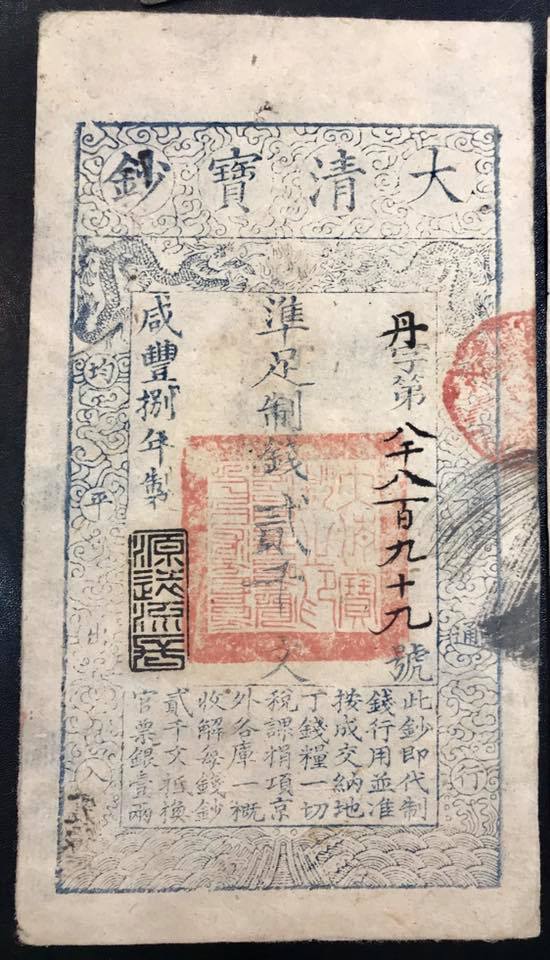 大清寶鈔
丹字第八千八百九十九號
準足制錢貳千文
咸豐捌年製
源遠流長
均平出入
通行
此鈔即代制
錢行用並准
按成交納地
丁錢糧一切
稅課捐項京
外各庫一概
收解每錢鈔
貳千文抵換
官票銀壹兩